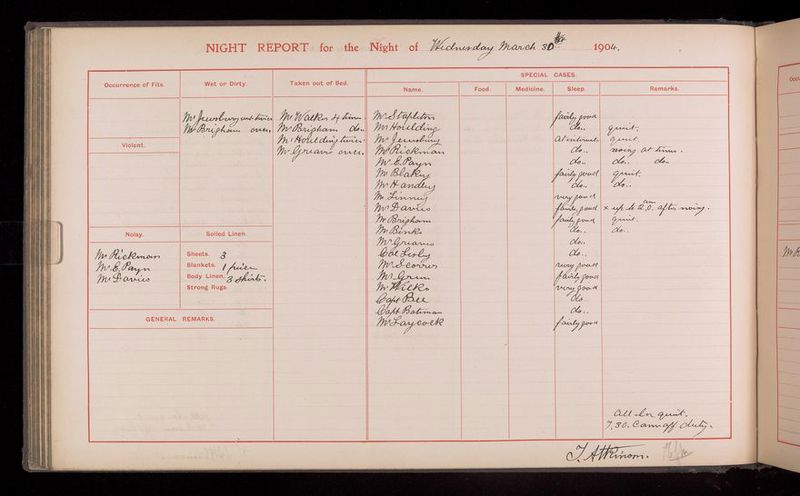 NIGHT REPORT for the Night of Wednesday March 30th 1904.
Occurrence of Fits.
Wet or Dirty.
Taken out of Bed.
SPECIAL CASES.
Name.
Food.
Medicine.
Sleep.
Remarks.
Mr Jewsbury wet twice
Mr Brigham once.
Mr Walker 4 times
Mr Brigham do.
Mr Houlding twice.
Mr Greaves once.
Violent.
Noisy.
Mr Rickman
Mr E. Payn
Mr Davies
Soiled Linen.
Sheets. 3
Blankets. 1 piece
Body Linen. 3 shirts.
Strong Rugs.
GENERAL REMARKS.
Mr Stapleton fairly good
Mr Houlding do.. quiet.
Mr Jewsbury at intervals quiet.
Mr Rickman do.. noisy at times.
Mr E. Payn do.. do.. do
Mr Blakey fairly good quiet.
Mr Handley do.. do..
Mr Linney very good
Mr Davies fairly good x up to 2.0. am after noisy.
Mr Brigham fairly good quiet.
Mr Binks do.. do..
Mr Greaves do..
Col Lesly do..
Mr Scorer very good
Mr Green fairly good
Mr Wilks very good
Capt Bell do
Capt Bateman do..
Mr Laycock fairly good
All else quiet.
7.30. Came off duty.
J. Atkinson.